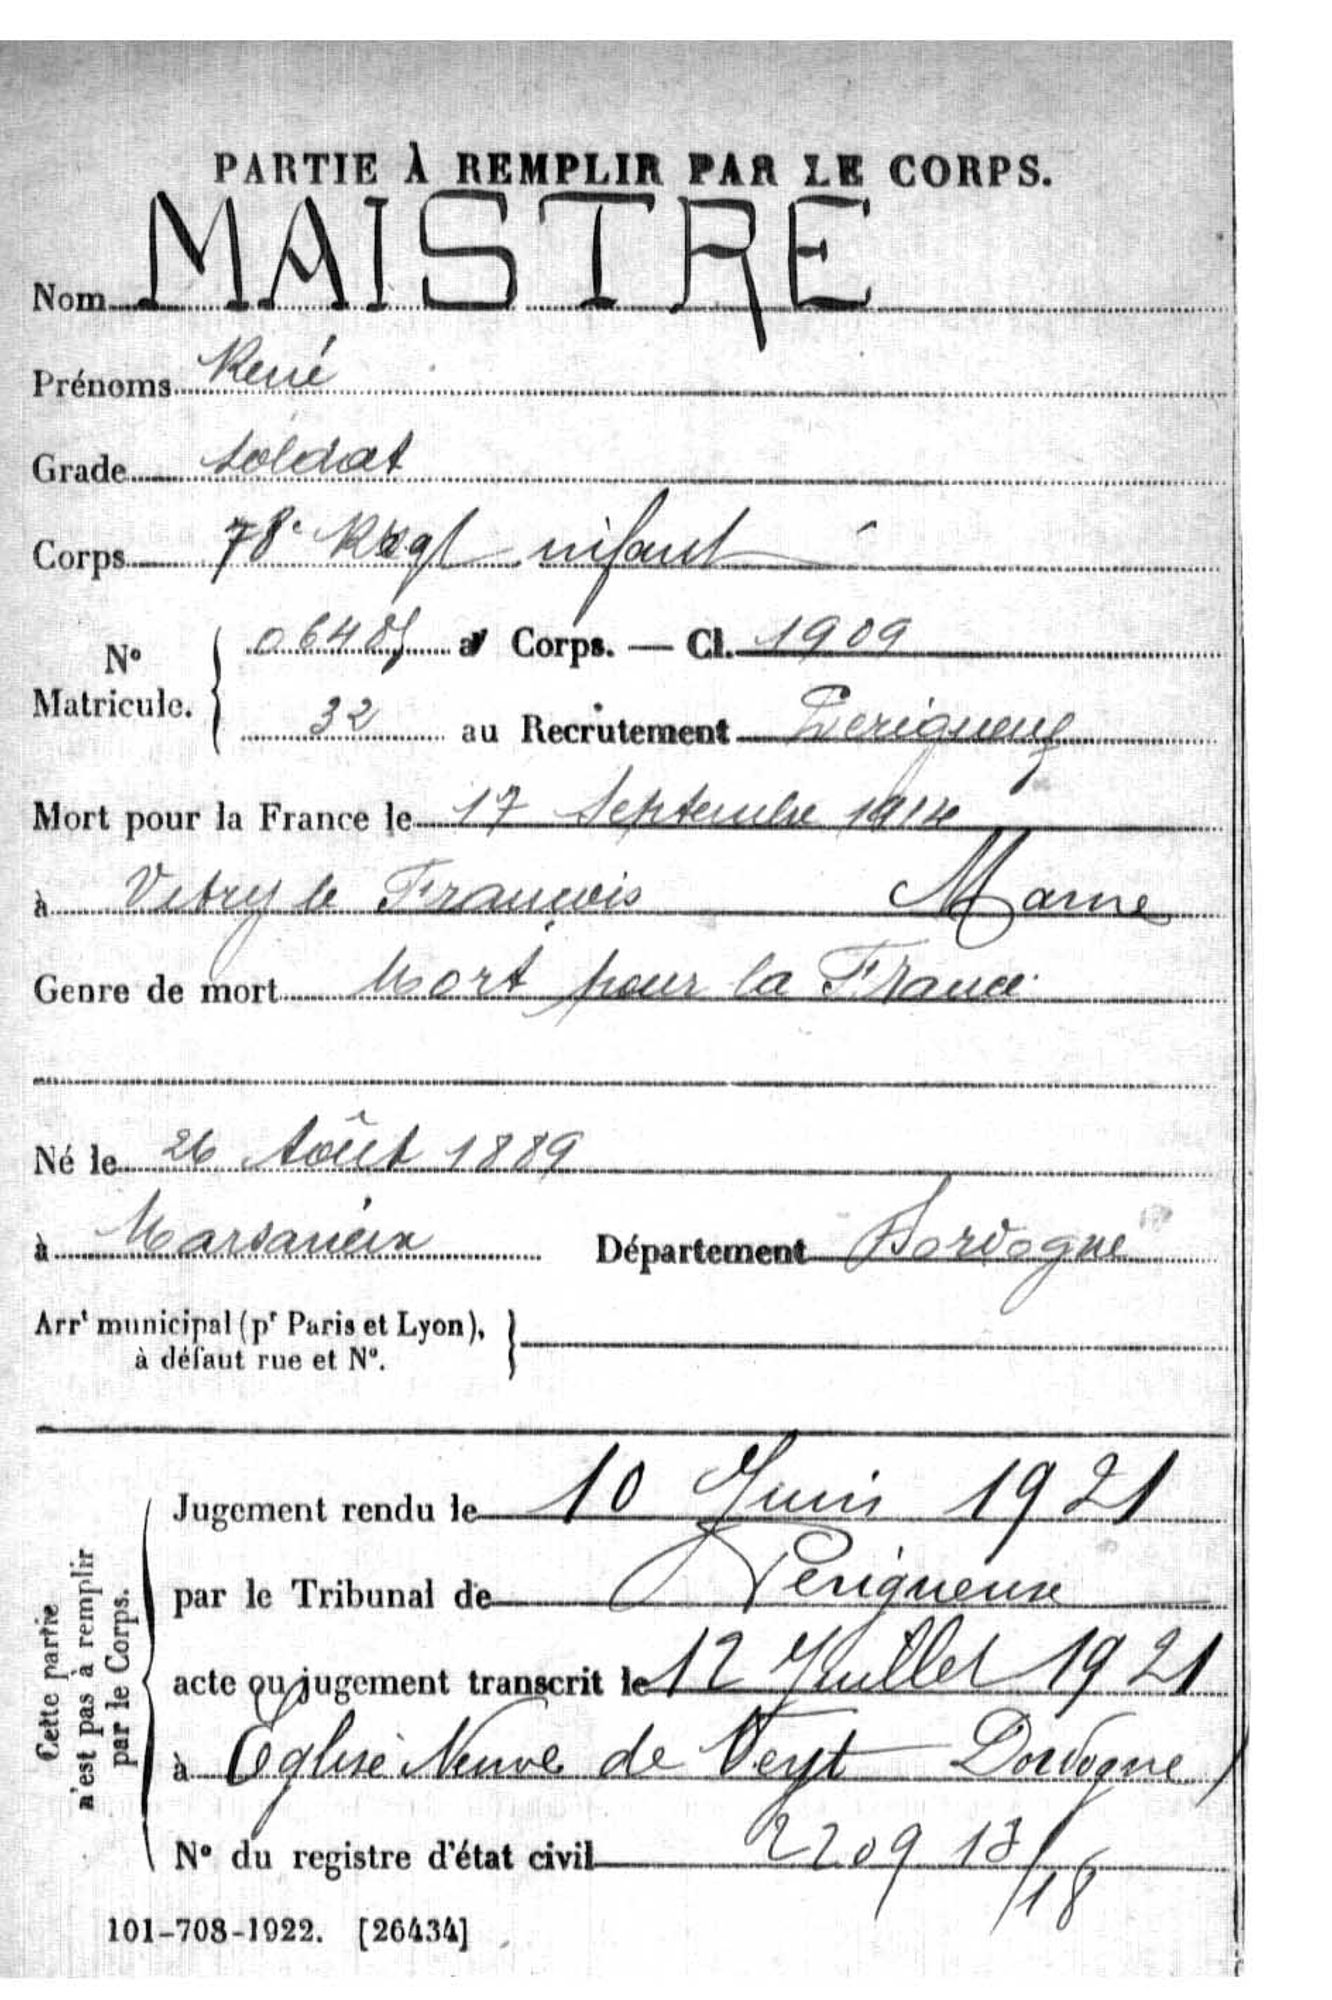 PARTIE À REMPLIR PAR LE CORPS.
Nom MAISTRE
Prénoms René
Grade soldat
Corps 78e Regt infant
N° Matricule. { au Corps. — Cl. 1909
32 au Recrutement Perigueux
Mort pour la France le 17 Septembre 1914
à Vitry le François Marne
Genre de mort Mort pour la France
Né le 26 Août 1889
à Marsaneix Département Dordogne
Arrt municipal (pr Paris et Lyon), }
à défaut rue et N°.
Cette partie
n'est pas à remplir
par le Corps.
Jugement rendu le 10 Juin 1921
par le Tribunal de Perigueux
acte ou jugement transcrit le 12 Juillet 1921
à Eglise Neuve de Vergt Dordogne
N° du registre d'état civil 2209 13/18
101-708-1922. [26434]